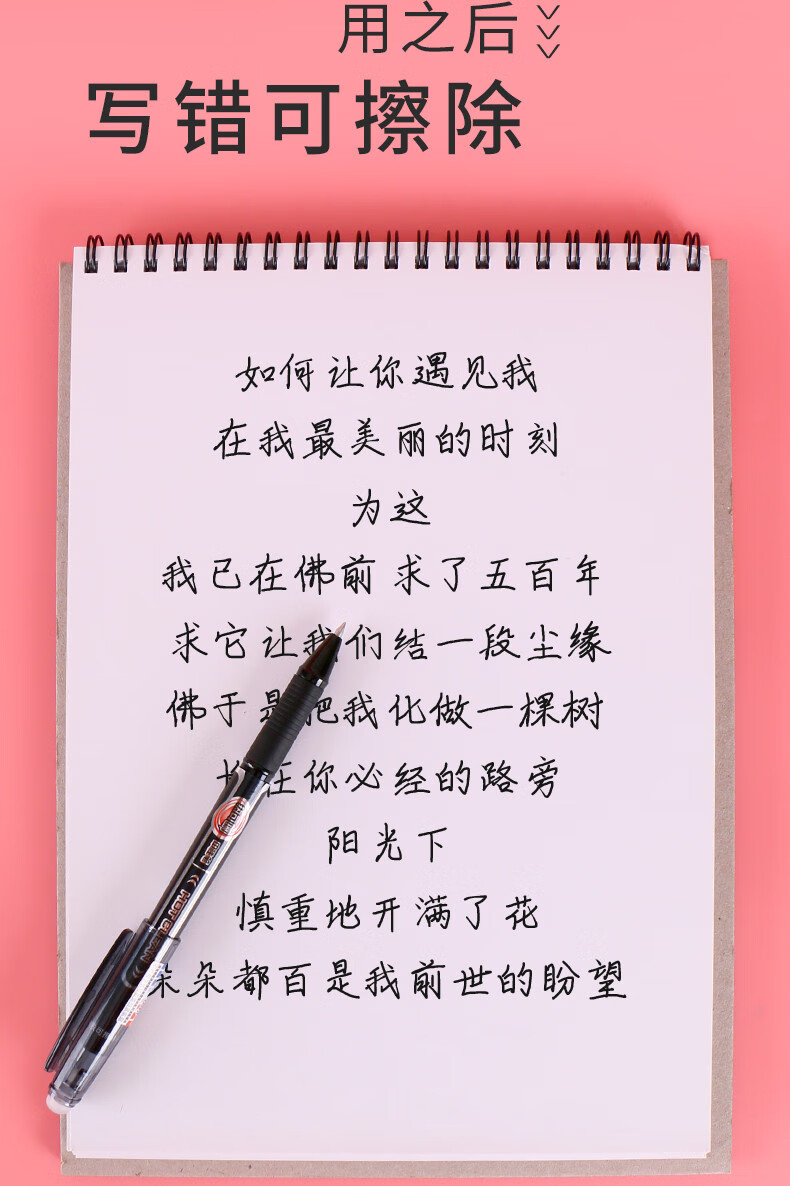 用之后
写错可擦除
如何让你遇见我
在我最美丽的时刻
为这
我已在佛前求了五百年
求它让我们结一段尘缘
佛于是把我化做一棵树
在你必经的路旁
阳光下
慎重地开满了花
朵朵都百是我前世的盼望
HOT CLEAN